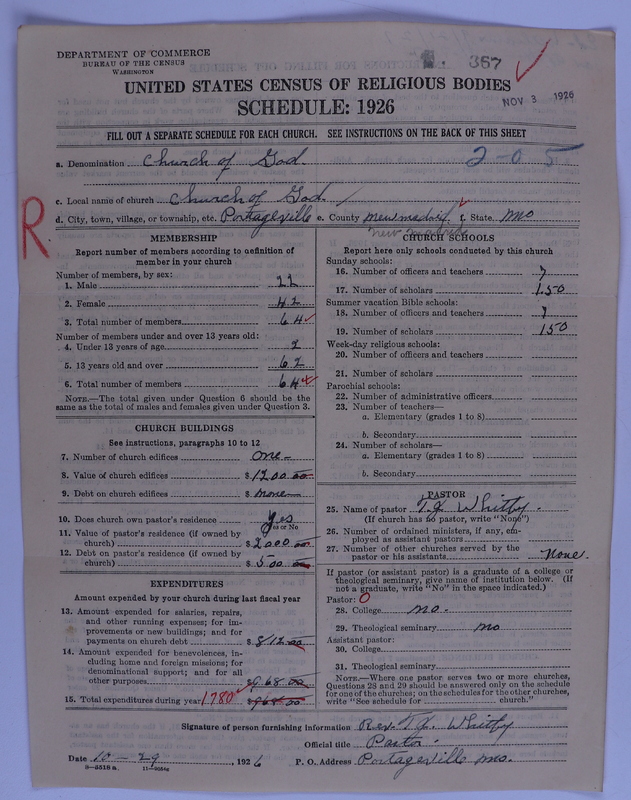 DEPARTMENT OF COMMERCE
BUREAU OF THE CENSUS
WASHINGTON
367
UNITED STATES CENSUS OF RELIGIOUS BODIES
SCHEDULE: 1926
NOV 3 1926
FILL OUT A SEPARATE SCHEDULE FOR EACH CHURCH. SEE INSTRUCTIONS ON THE BACK OF THIS SHEET
a. Denomination Church of God 2-05
c. Local name of church Church of God
d. City, town, village, or township, etc. Portageville e. County newmadrid f. State. Mo
new madrid
R
MEMBERSHIP
Report number of members according to definition of
member in your church
Number of members, by sex:
1. Male 22
2. Female 42
3. Total number of members 64
Number of members under and over 13 years old:
4. Under 13 years of age 2
5. 13 years old and over 62
6. Total number of members 64
NOTE.—The total given under Question 6 should be
same as the total of males and females given under Question 3.
CHURCH BUILDINGS
See instructions, paragraphs 10 to 12
7. Number of church edifices one
8. Value of church edifices $1200.00
9. Debt on church edifices $ none
10. Does church own pastor's residence yes
Yes or No
11. Value of pastor's residence (if owned by
church) $2000.00
12. Debt on pastor's residence (if owned by
church) $500.00
EXPENDITURES
Amount expended by your church during last fiscal year
13. Amount expended for salaries, repairs,
and other running expenses; for im-
provements or new buildings; and for
payments on church debt $812.00
14. Amount expended for benevolences, in-
cluding home and foreign missions; for
denominational support; and for all
other purposes $968.00
15. Total expenditures during year 1780 $968.00
CHURCH SCHOOLS
Report here only schools conducted by this church
Sunday schools:
16. Number of officers and teachers 7
17. Number of scholars 150
Summer vacation Bible schools:
18. Number of officers and teachers 7
19. Number of scholars 150
Week-day religious schools:
20. Number of officers and teachers
21. Number of scholars
Parochial schools:
22. Number of administrative officers
23. Number of teachers—
a. Elementary (grades 1 to 8)
b. Secondary
24. Number of scholars—
a. Elementary (grades 1 to 8)
b. Secondary
PASTOR
25. Name of pastor T.J. Whitby
(If church has no pastor, write "None")
26. Number of ordained ministers, if any, em-
ployed as assistant pastors
27. Number of other churches served by the
pastor or his assistants None.
If pastor (or assistant pastor) is a graduate of a college or
theological seminary, give name of institution below. (If
not a graduate, write "No" in the space indicated.)
Pastor: 0
28. College no.
29. Theological seminary no
Assistant pastor:
30. College
31. Theological seminary
NOTE.—Where one pastor serves two or more churches,
Questions 28 and 29 should be answered only on the schedule
for one of the churches; on the schedules for the other churches,
write "See schedule for church."
Signature of person furnishing information Rev. T.J. Whitby
Official title Pastor
Date 10-29, 1926 P. O. Address Portageville Mo.